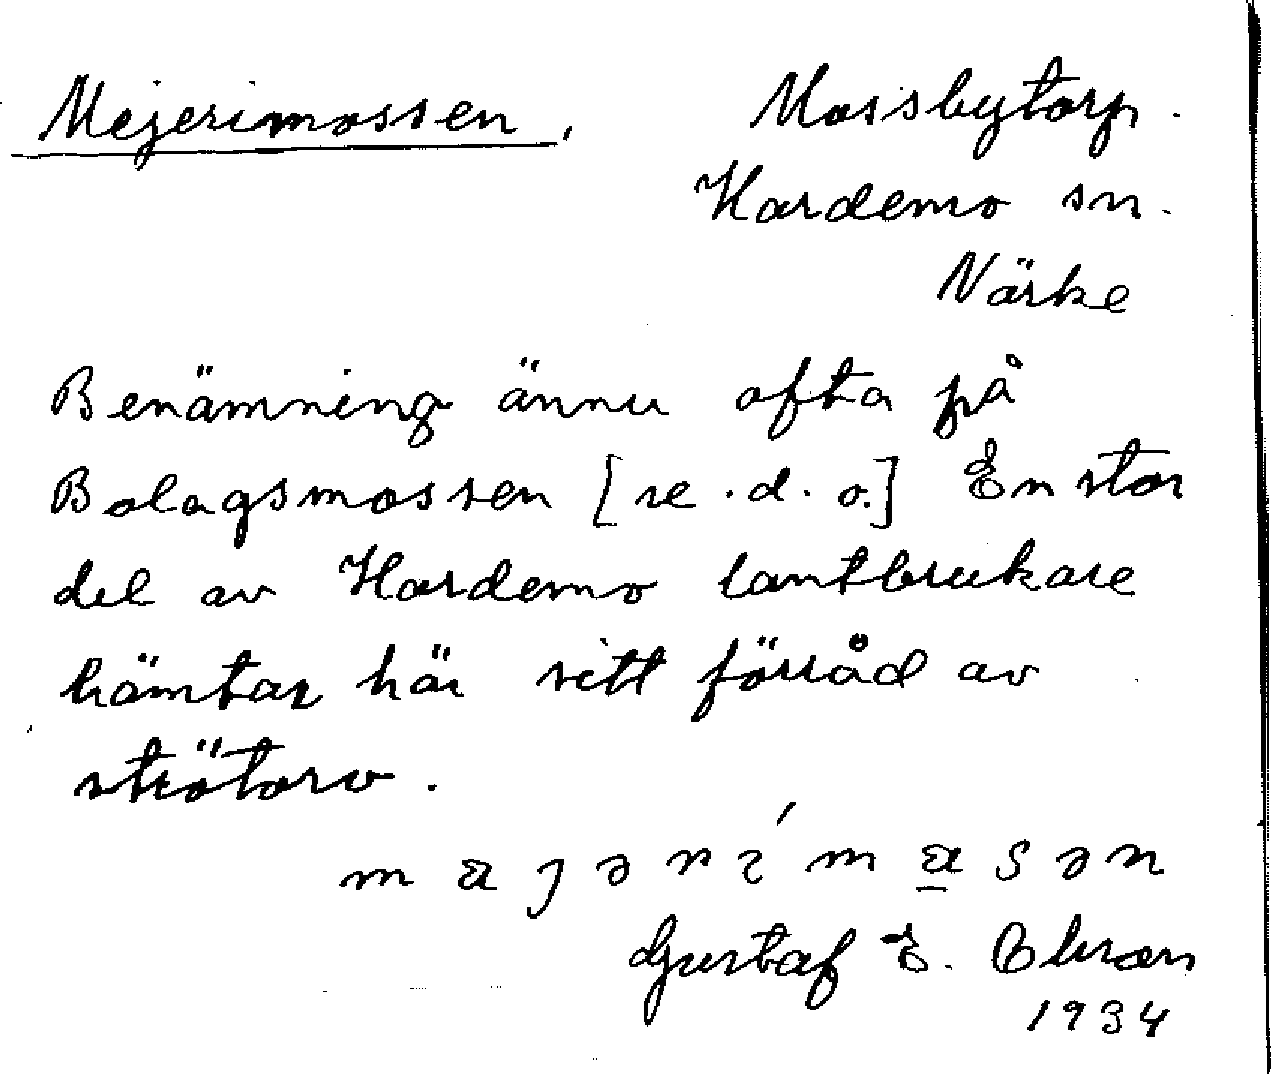 Mejerimossen.
Mossbytorp.
Hardemo sn.
Närke
Benämning ännu ofta på
Bolagsmossen [se. d. o.] En stor
del av Hardemo lantbrukare
hämtar här sitt förråd av
strötorv.
Gustaf E.
1934